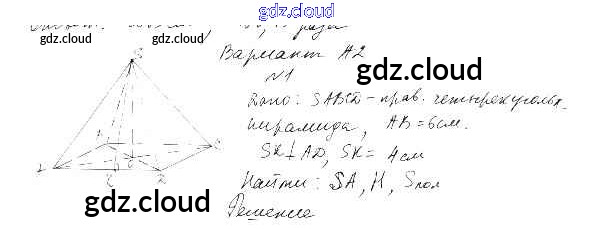 gdz.cloud
gdz.cloud gdz.cloud
Вариант А2
gdz.cloud
N1
Дано: SABCD - прав. четырехугольн.
пирамида, AB = 6 см.
SK ⊥ AD, SK = 4 см
Найти: SA, H, Sпол
gdz.cloud
Решение